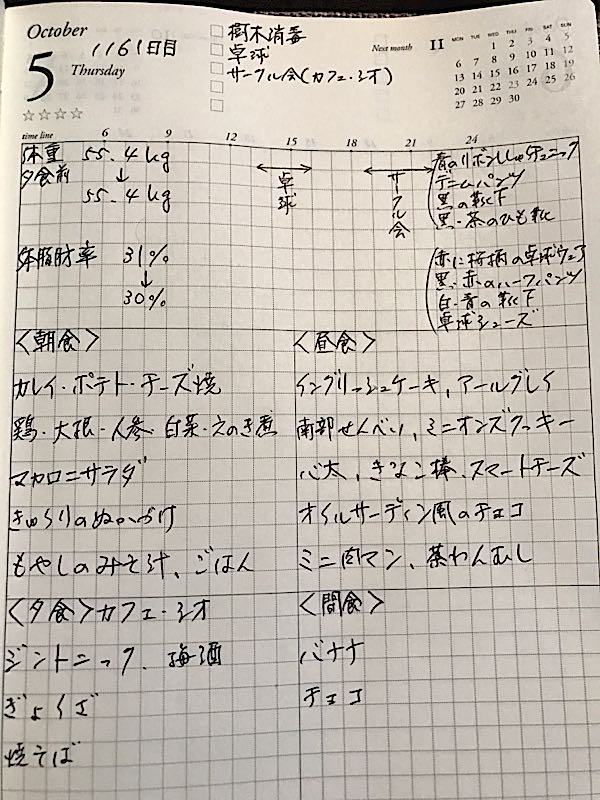 October
5
Thursday
1161日目
☆☆☆☆
樹木消毒
卓球
サークル会(カフェ・シオ)
Next month 11
MON TUE WED THU FRI SAT SUN
1 2 3 4 5
6 7 8 9 10 11 12
13 14 15 16 17 18 19
20 21 22 23 24 25 26
27 28 29 30
time line 6 9 12 15 18 21 24
体重 55.4kg
夕食前 ↓
55.4kg
体脂肪率 31%
↓
30%
卓球
サークル会
青のリボンししゅうチュニック
デニムパンツ
黒の靴下
黒・茶のひも靴
赤に桜柄の卓球ウェア
黒・赤のハーフパンツ
白・青の靴下
卓球シューズ
〈朝食〉
カレイ・ポテト・チーズ焼
鶏・大根・人参・白菜・えのき煮
マカロニサラダ
きゅうりのぬかづけ
もやしのみそ汁、ごはん
〈昼食〉
イングリーシュケーキ、アールグレイ
南部せんべい、ミニオンズクッキー
心太、きなこ棒、スマートチーズ
オイルサーディン風のチョコ
ミニ肉マン、茶わんむし
〈夕食〉カフェ・シオ
ジントニック、梅酒
ぎょうざ
焼そば
〈間食〉
バナナ
チョコ